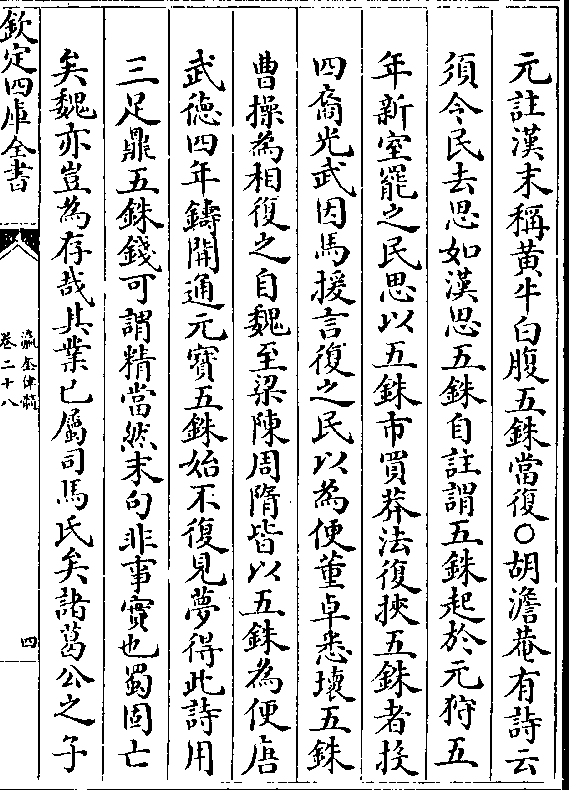 元註漢末稱黄牛白腹五銖當復○胡澹菴有詩云
須令民去思如漢思五銖自註謂五銖起於元狩五
年新室罷之民思以五銖市買莽法復挾五銖者投
四裔光武因馬援言復之民以為便董卓悉壞五銖
曹操為相復之自魏至梁陳周隋皆以五銖為便唐
武徳四年鑄開通元寳五銖始不復見夢得此詩用
三足鼎五銖錢可謂精當然末句非事實也蜀固亡
矣魏亦豈為存哉其業已屬司馬氏矣諸葛公之子
欽定四庫全書
瀛奎律髓
卷二十八
四